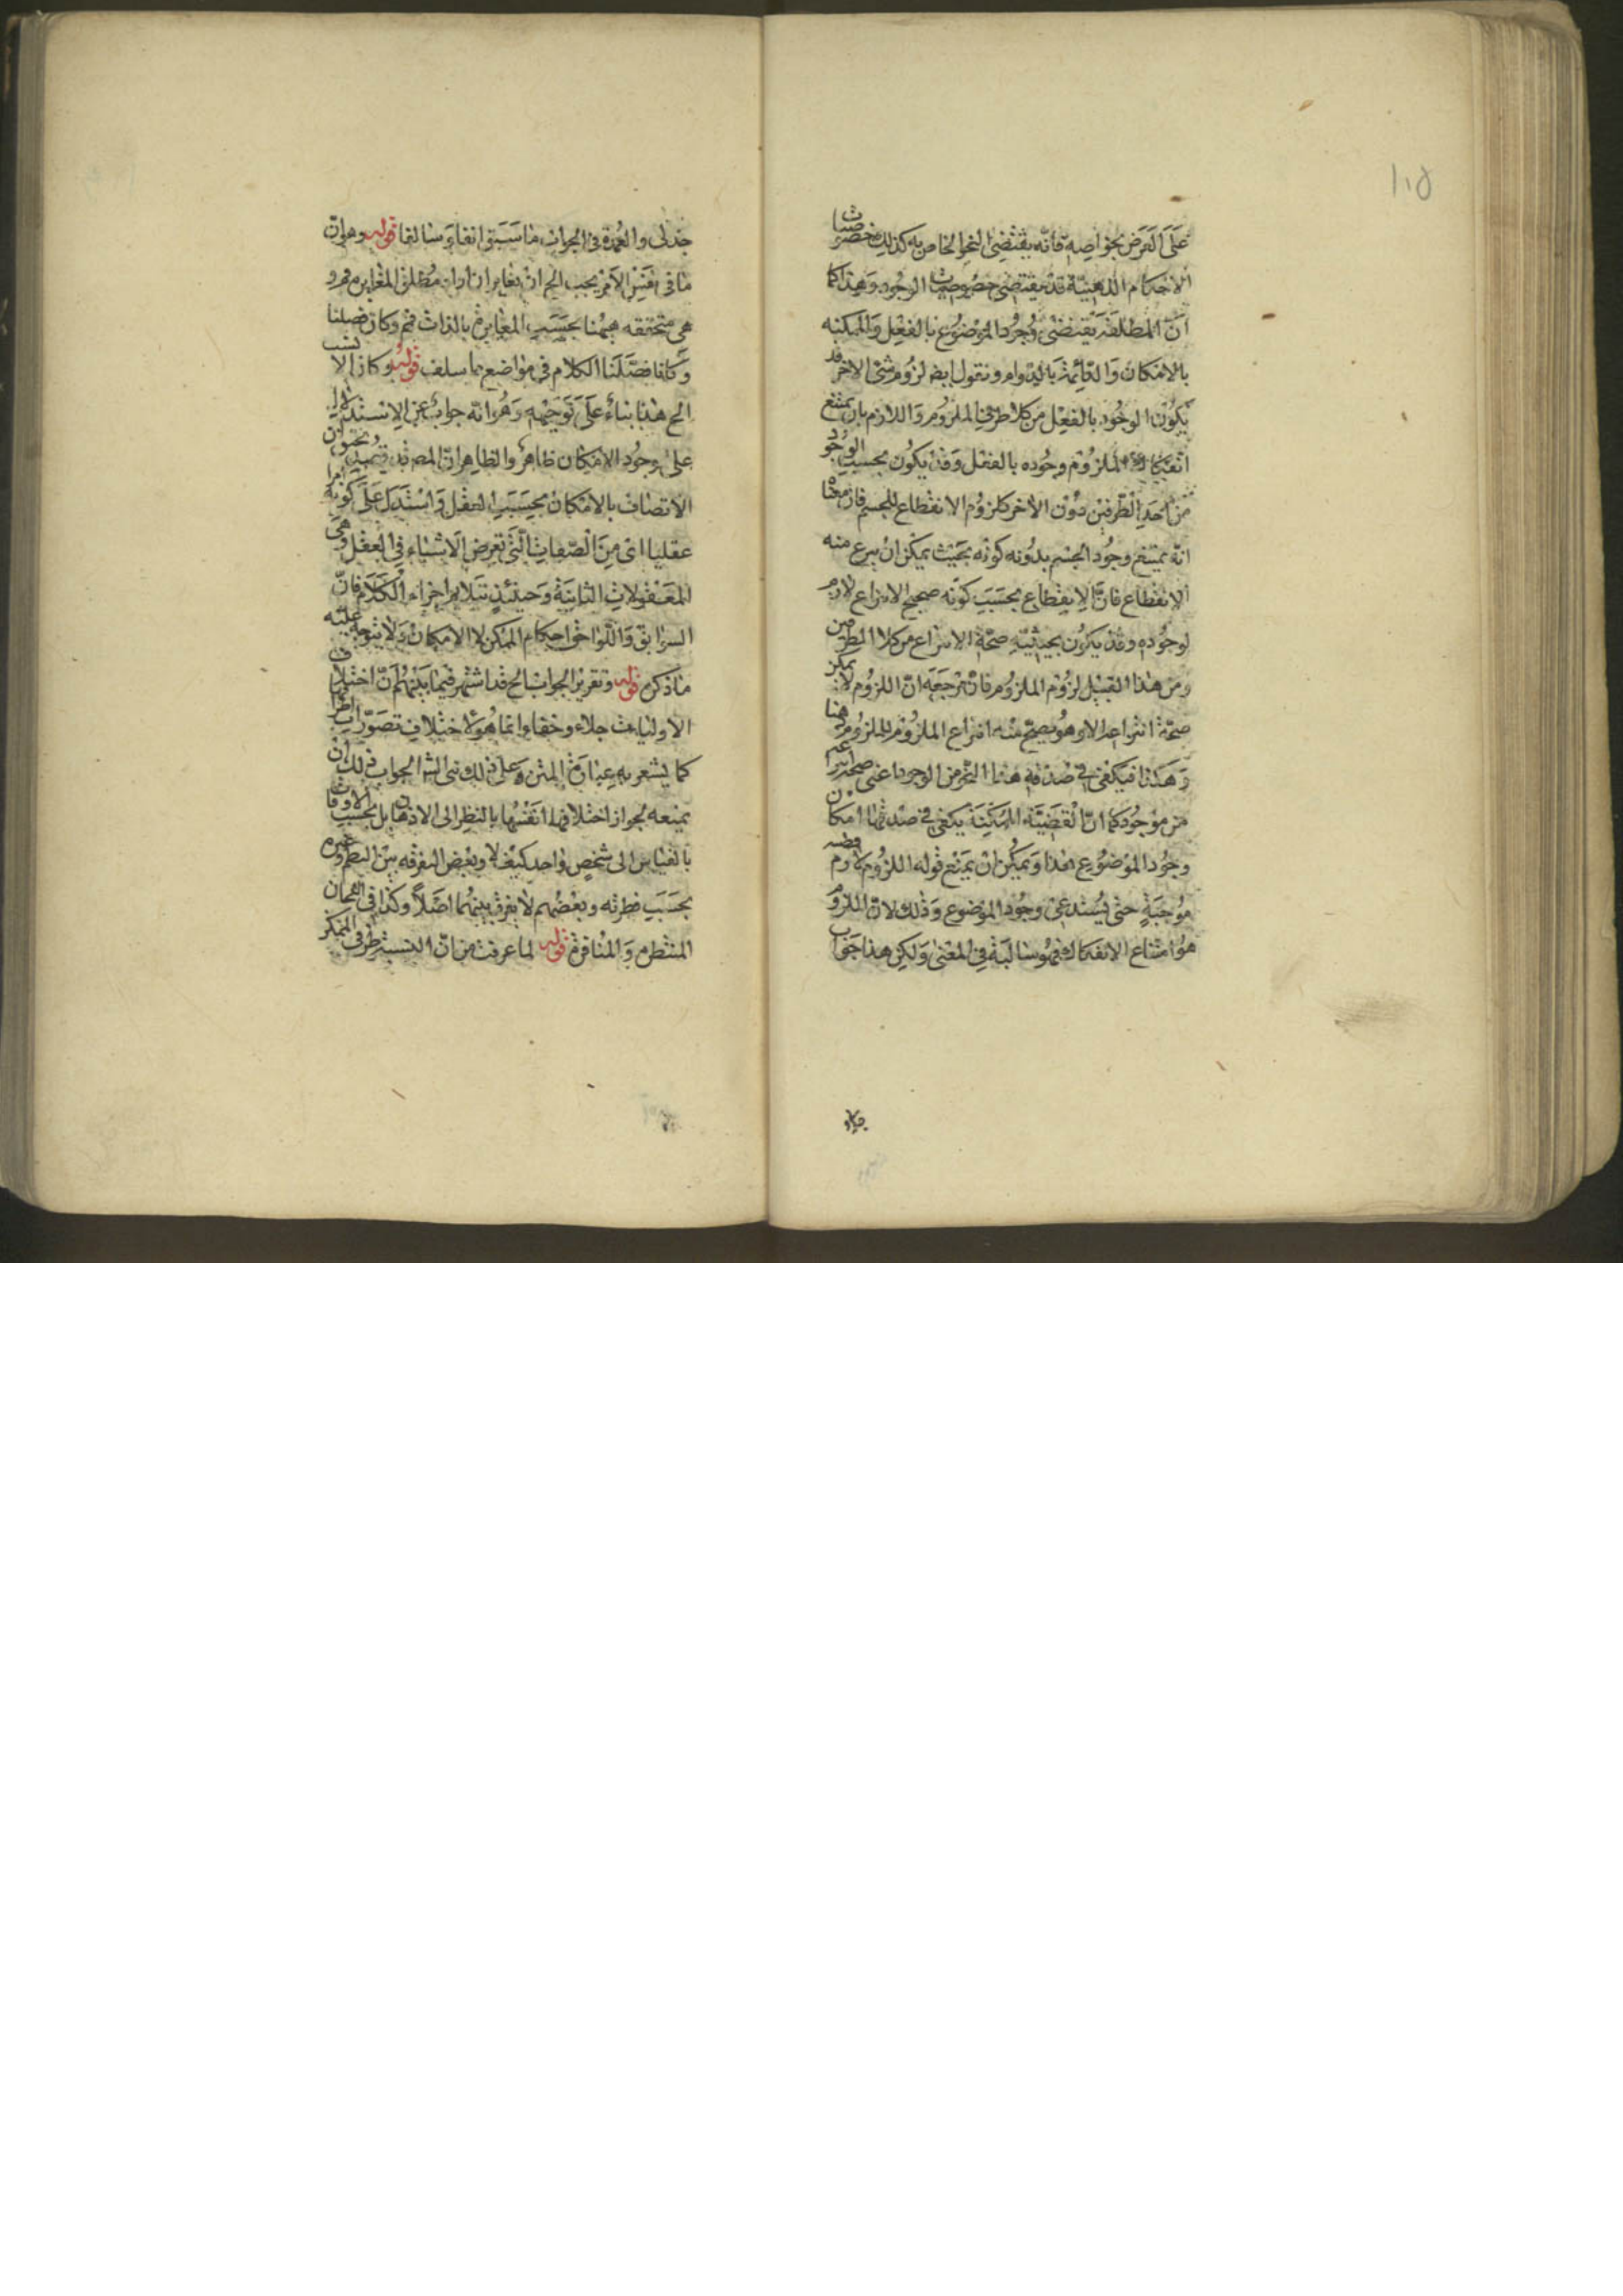 ١٠٥
على العرض بخواصه فانه يقتضى النحو الخاص به كذلك خصوصيات
الاحكام الذهنية قد يقتضى خصوصيات الوجود وهذا كما
ان المطلقة يقتضى وجود الموضوع بالفعل والممكنه
بالامكان والدائمة بالدوام ونقول ايض لزوم شئ لاخر قد
يكون الوجود بالفعل من كلا طرفى الملزوم واللازم بان يمتنع
انفكاك الملزوم وجوده بالفعل وقد يكون بحسب الوجود
من احد الطرفين دون الاخر كلزوم الانقطاع للجسم فان معناه
انه يمتنع وجود الجسم بدونه كونه بحيث يمكن ان ينزع منه
الانقطاع فان الانقطاع بحسب كونه صحيح الانتزاع لازم
لوجوده وقد يكون بحيثية صحة الانتزاع من كلا الطرفين
ومن هذا القبيل لزوم الملزوم فان مرجعه ان اللزوم لا يمكن
صحة انتزاعه الا وهو يصح منه انتزاع الملزوم للملزوم
وهكذا فيكفى فى صدقه هذا النحو من الوجود اعنى صحة انتزاعه
من موجود كما ان القضية الممكنة يكفى فى صدقها امكان
وجود الموضوع هذا ويمكن ان يمنع قوله اللزوم لازم قضيه
موجبة حتى يستدعى وجود الموضوع وذلك لان اللزوم
هو امتناع الانفكاك فهو سالبة فى المعنى ولكن هذا جواب
جدلى والعمدة فى الجواب ما سبق انفا وسالفا قوله وهو ان
ما فى نفس الامر يجب الخ ان يغاير ان اراد مطلق المغايره فهو
هى متحققه ههنا بحسب المغايرة بالذات فم وكان فصلنا
وكانا فصلنا الكلام فى مواضع مما سلف قوله وكان الانسب
الخ هذا بناء على توجيهه وهو انه جواب عن الاستدلال
على وجود الامكان ظاهر والظاهر ان المصنف
الاتصاف بالامكان بحسب العقل واستدل على كونه امرا
عقليا اى من الصفات التى تعرض الاشياء فى العقل وهى
المعقولات الثانية وحينئذ يتلايم اجزاء الكلام فان
السوابق واللواحق احكام الممكن لا الامكان ولا يتوجه عليه
ما ذكره قوله وتقرير الجواب الخ قد اشتهر فيما بينهم ان اختلاف
الاوليات جلاء وخفاء انما هو لاختلاف تصورات اطرافها
كما يشعر به عبارة المتن وعلى ذلك بنى الشر الجواب ذلك ان
يمنعه لجواز اختلافها انفسها بالنظر الى الاذهان بل بحسب الاوقات
بالقياس الى شخص واحد كيف لا وبعض التفرقه بين النظم وغيره
بحسب فطرته وبعضهم لا يفرق بينهما اصلا وكذا فى الالحان
المنتظمة والمنافرة قوله لما عرفت من ان النسبة طرفى الممكن
جدلى